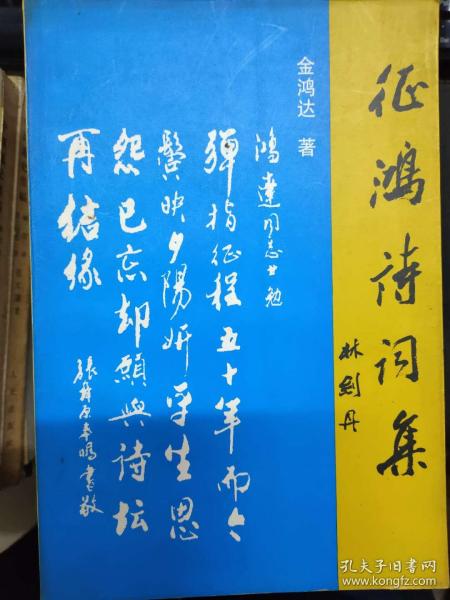 征鸿诗词集
林剑丹
金鸿达 著
鸿達同志共勉
彈指征程五十年而今
鬓映夕陽妍平生恩
怨已忘却願與诗坛
再结缘
孔夫子旧书网
www.kongfz.com